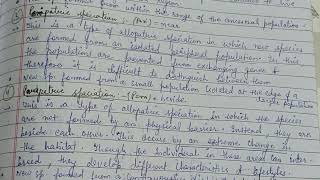 formed from within the range of the ancestral population.
③ speciation: (Peri) = near
This is a type of allopatric speciation in which new species
are formed from an isolated peripheral population. In this
the populations are prevented from exchanging genes &
therefore it is difficult to distinguish between them
New sp. formed from a small population located at the edge of a
larger population
④ speciation: (Para) = beside
This is a type of allopatric speciation in which the species
are not formed by any physical barrier. Instead, they are
beside each other. This occurs by an extreme change in
the habitat. Though the individual in these areas can inter-
breed, they develop different characteristics & lifestyles.
New sp. formed from a